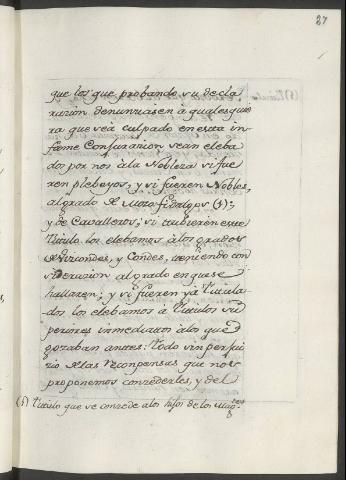 27
que los que probando su decla
racion denunziasen à qualesquie
ra que sea culpado en esta in-
fame Conjuracion sean eleba
dos por nos à la Nobleza si fue
ren plebeyos, y si fueren Nobles,
al grado de Mozo-fidalgos (1);
y de Cavalleros; si tubieren este
Titulo los elebamos à los grados
de Vizcondes, y Condes, teniendo con
siderazion al grado en que se
hallaren; y si fueren yà Titula-
dos los elebamos à Titulos su
periores inmediatos à los que
gozaban antes: todo sin perjui
zio de las recompensas que nos
proponemos concederles, y del
(1) Titulo que se concede a los hijos de los Mag.des